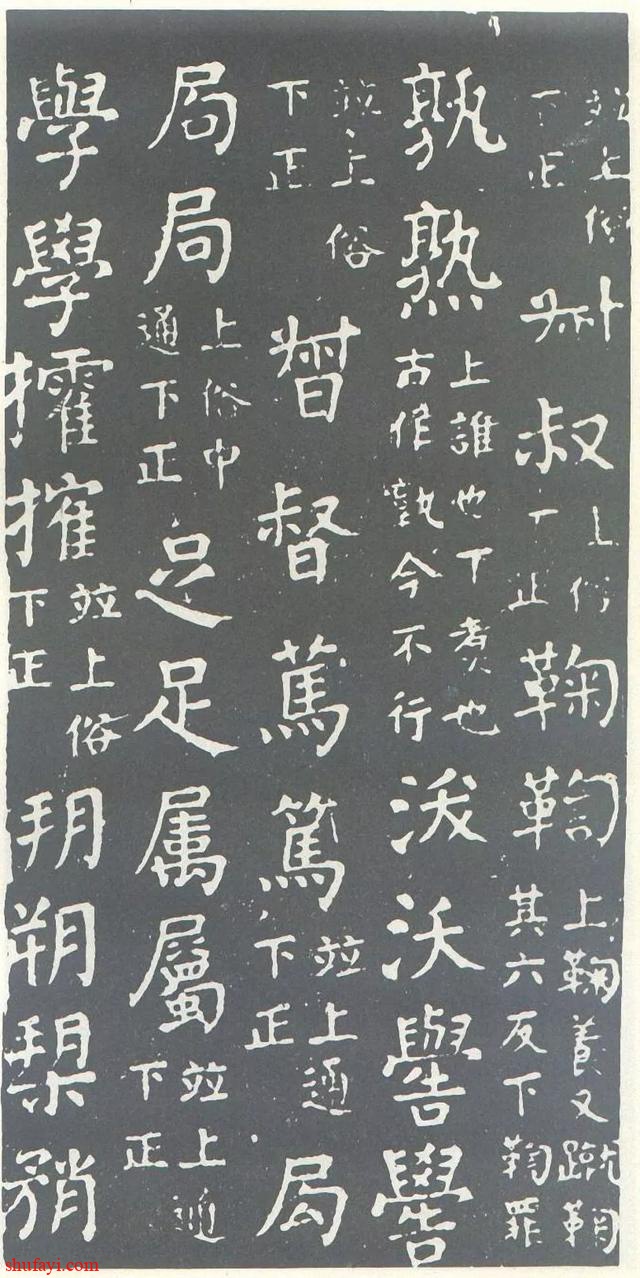 並上俗下正叔上俗下正鞠鞫上鞠養又蹴鞠其六反下鞫罪
孰熟上誰也下煑也古作今不行沃嚳
並上俗下正督篤篤並上通下正局
局局上俗中通下正足足属屬並上通下正
學學㩁搉並上俗下正朔槊矟